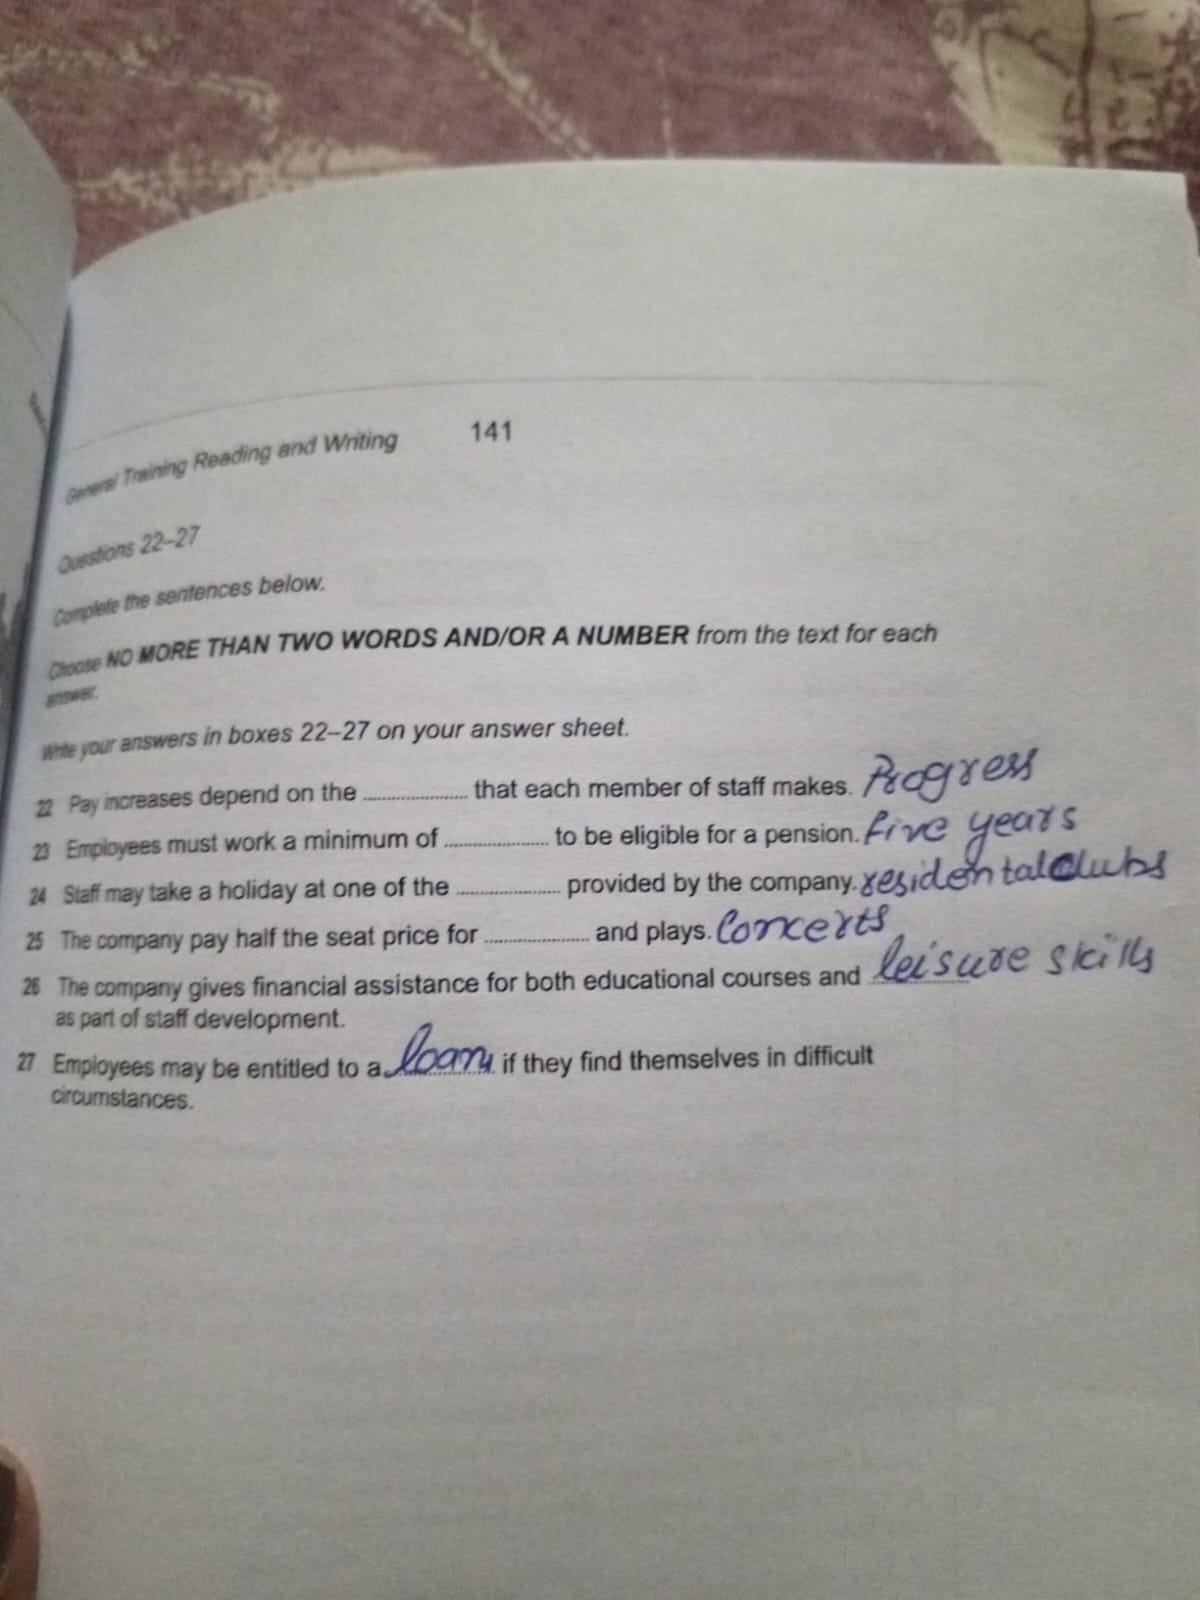 General Training Reading and Writing 141
Questions 22–27
Complete the sentences below.
Choose NO MORE THAN TWO WORDS AND/OR A NUMBER from the text for each
answer.
Write your answers in boxes 22–27 on your answer sheet.
22 Pay increases depend on the ..................... that each member of staff makes. Progress
23 Employees must work a minimum of ..................... to be eligible for a pension. five years
24 Staff may take a holiday at one of the ..................... provided by the company. residental clubs
25 The company pay half the seat price for ..................... and plays. Concerts
26 The company gives financial assistance for both educational courses and leisure skills
as part of staff development.
27 Employees may be entitled to a loan if they find themselves in difficult
circumstances.